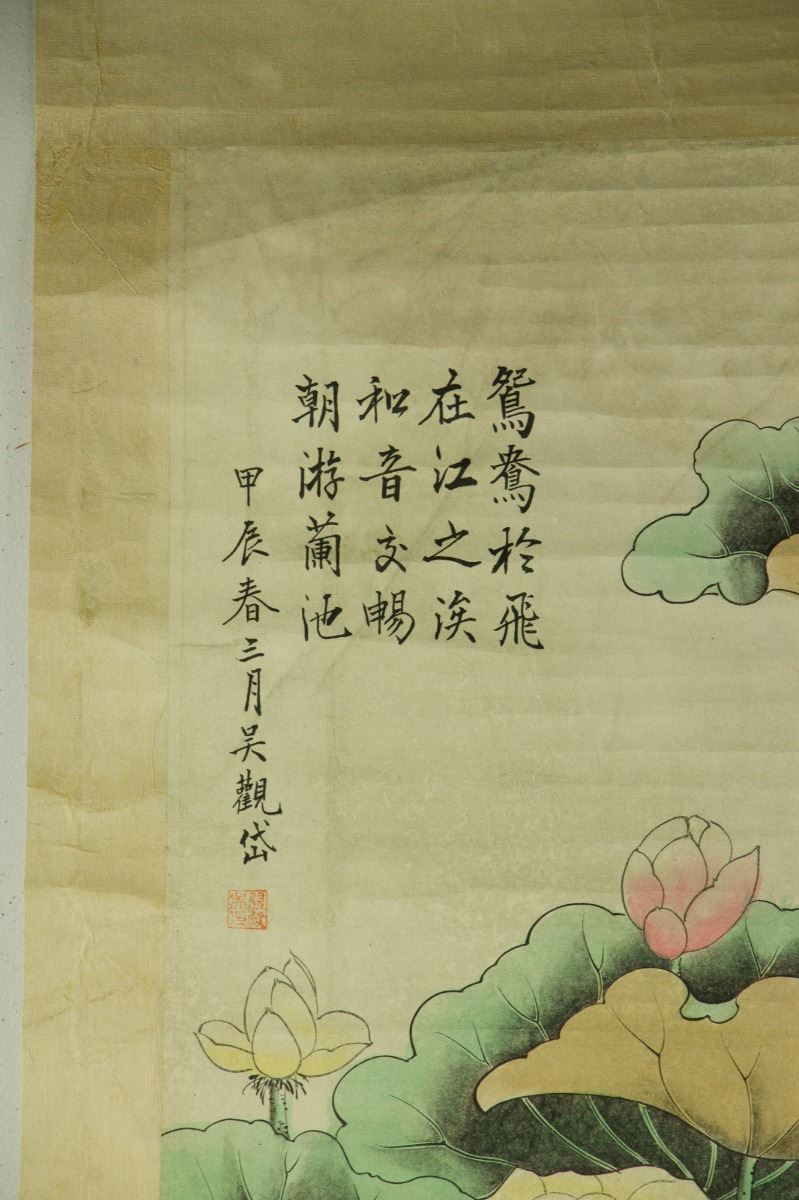 鴛鴦於飛
在江之涘
和音交暢
朝游蘭池
甲辰春三月吴觀岱